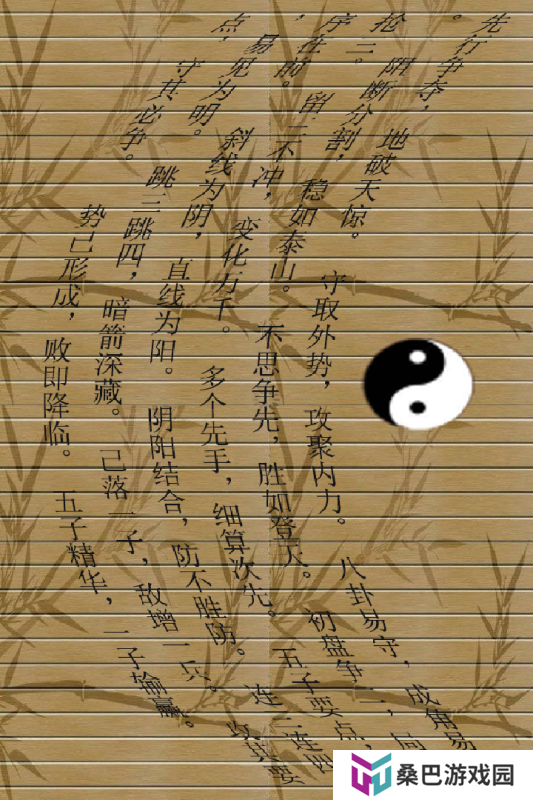 先行争夺，地破天惊。守取外势，攻聚内力。八卦易守，成角易
。阻断分割，稳如泰山。不思争先，胜如登天。初盘争二，局
抢三。留三不冲，变化万千。多个先手，细算次先。五子要点，
序在前。斜线为阴，直线为阳。阴阳结合，防不胜防。连三连四
，易见为明。跳三跳四，暗箭深藏。己落一子，敌增一兵。攻其要
点，守其必争。势己形成，败即降临。五子精华，一子输赢。
桑巴游戏园